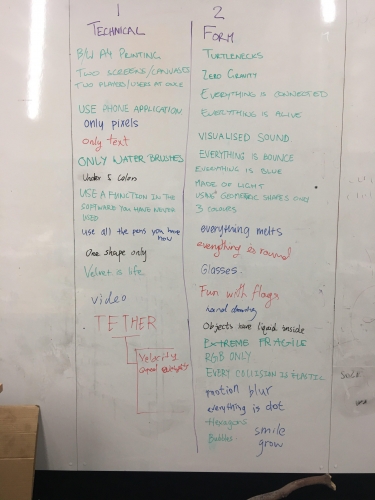 1
TECHNICAL
B/W A4 PRINTING
TWO SCREENS/CANVASES
TWO PLAYERS/USERS AT ONCE
USE PHONE APPLICATION
only pixels
only text
ONLY WATER BRUSHES
Under 5 colors
USE A FUNCTION IN THE
SOFTWARE YOU HAVE NEVER
USED
use all the pens you have
now
One shape only
Velvet is life
video
TETHER
Velocity
2
FORM
TURTLENECKS
ZERO GRAVITY
EVERYTHING IS CONNECTED
EVERYTHING IS ALIVE
VISUALISED SOUND
EVERYTHING IS BOUNCE
EVERYTHING IS BLUE
MADE OF LIGHT
USING GEOMETRIC SHAPES ONLY
3 COLOURS
everything melts
everything is round
Glasses.
Fun with flags
hand drawing
Objects have liquid inside
EXTREME FRAGILE
RGB ONLY
EVERY COLLISION IS ELASTIC
motion blur
everything is dot
Hexagons
Bubbles
smile
grow